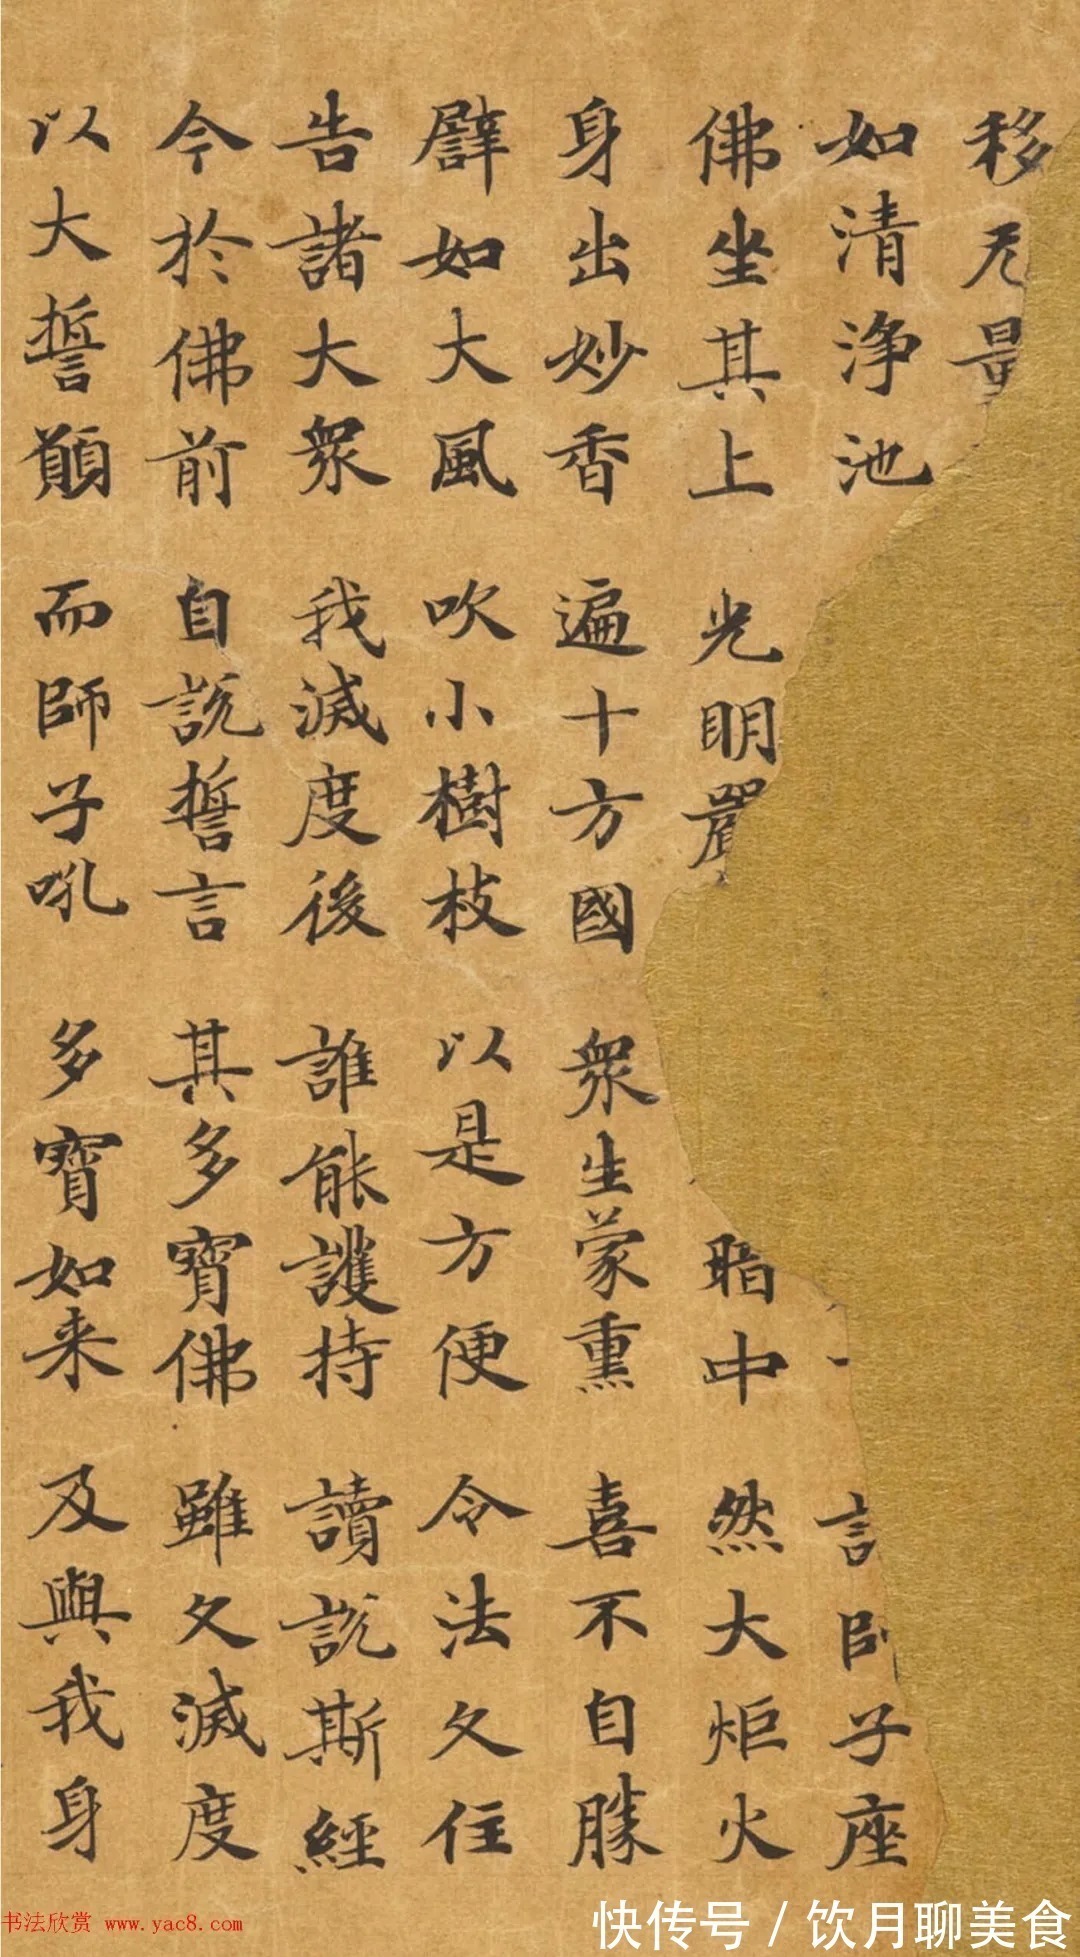 移无量
如清淨池 言師子座
佛坐其上 光明嚴 暗中 然大炬火
身出妙香 遍十方國 眾生蒙熏 喜不自勝
譬如大風 吹小樹枝 以是方便 令法久住
告諸大眾 我滅度後 誰能護持 讀說斯經
今於佛前 自說誓言 其多寶佛 雖久滅度
以大誓願 而師子吼 多寶如来 及與我身
书法欣赏 www.yac8.com
快传号/饮月聊美食